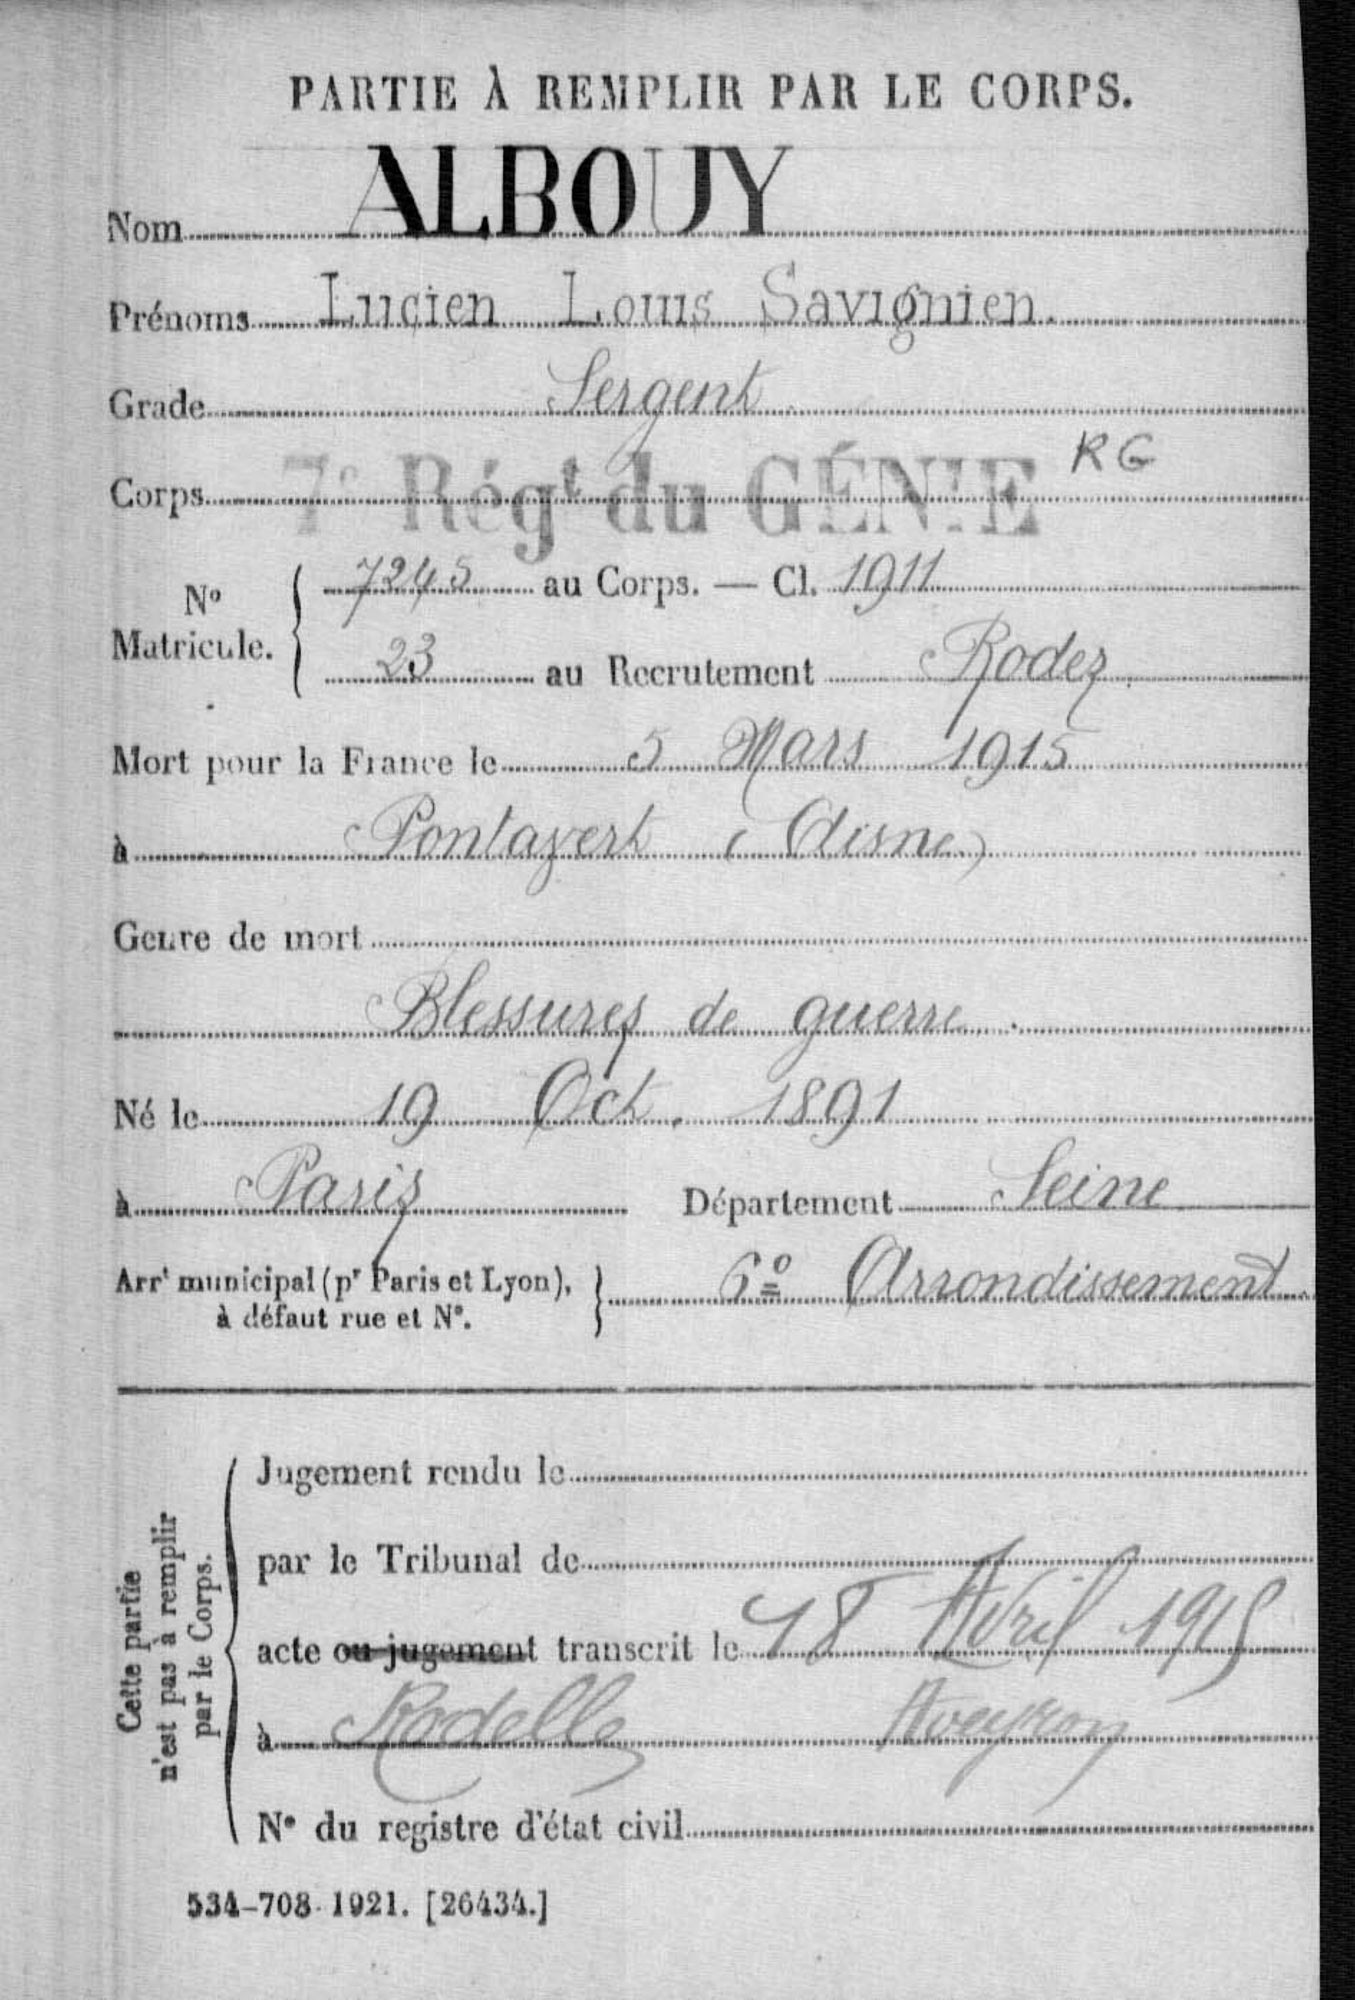 PARTIE À REMPLIR PAR LE CORPS.
Nom ALBOUY
Prénoms Lucien Louis Savignien.
Grade Sergent
Corps 7e Régt du GÉNIE RG
No Matricule. 7245 au Corps. — Cl. 1911
23 au Recrutement Rodez.
Mort pour la France le 5 Mars 1915
à Pontavert (Aisne)
Genre de mort
Blessures de guerre.
Né le 19 Oct. 1891
à Paris Département Seine
Arrt municipal (pr Paris et Lyon), à défaut rue et No. 6o Arrondissement
Cette partie n'est pas à remplir par le Corps.
Jugement rendu le
par le Tribunal de
acte ou jugement transcrit le 18 Avril 1915
à Rodelle Aveyron
No du registre d'état civil
534-708-1921. [26434.]